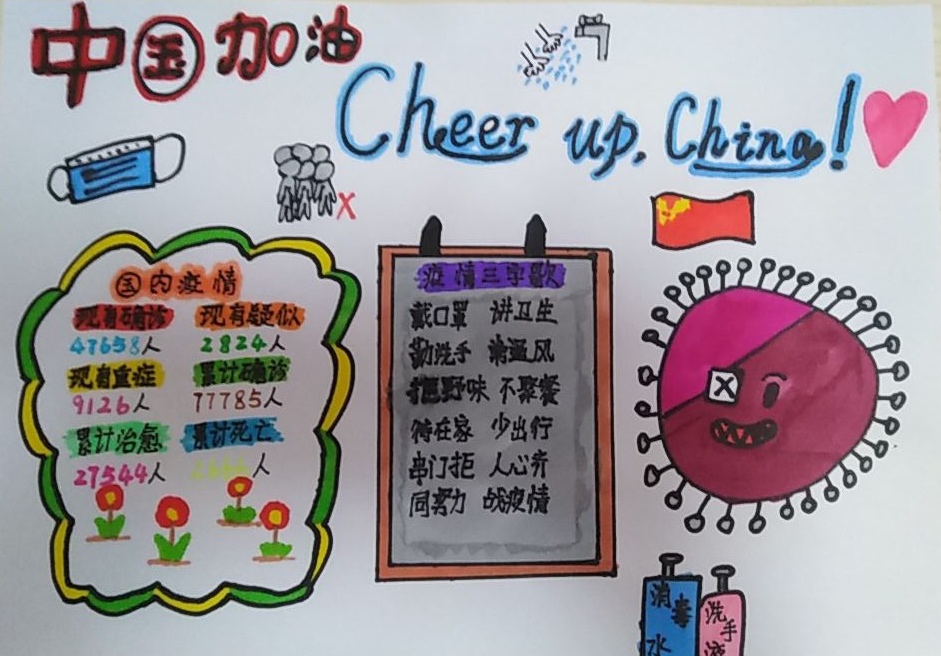 中国加油
Cheer up, China!
国内疫情
现有确诊 现有疑似
47658人 2824人
现有重症 累计确诊
9126人 77785人
累计治愈 累计死亡
27544人 人
疫情三字歌
戴口罩 讲卫生
勤洗手 通风
拒野味 不聚餐
待在家 少出行
串门拒 人心齐
同努力 战疫情
消毒水
洗手液